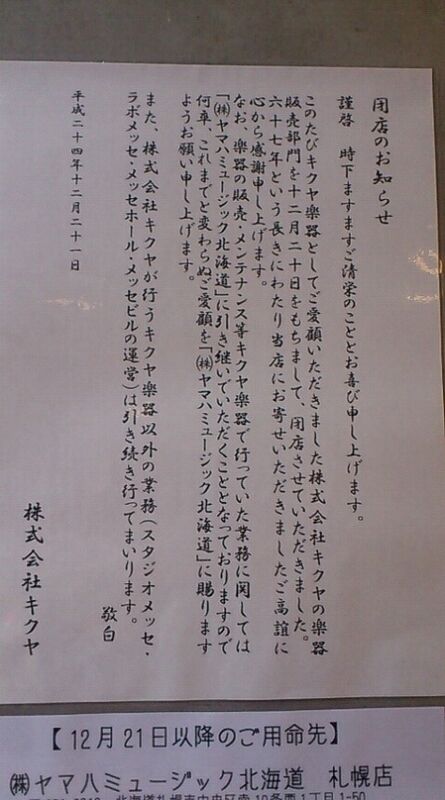 閉店のお知らせ
謹啓　時下ますますご清栄のこととお喜び申し上げます。
このたびキクヤ楽器としてご愛顧いただきました株式会社キクヤの楽器
販売部門を十二月二十日をもちまして、閉店させていただきました。
六十七年という長きにわたり当店にお寄せいただきましたご高誼に
心から感謝申し上げます。
なお、楽器の販売・メンテナンス等キクヤ楽器で行っていた業務に関しては
「㈱ヤマハミュージック北海道」に引き継いでいただくこととなっておりますので
何卒、これまでと変わらぬご愛顧を「㈱ヤマハミュージック北海道」に賜ります
ようお願い申し上げます。
また、株式会社キクヤが行うキクヤ楽器以外の業務（スタジオメッセ・
ラボメッセ・メッセホール・メッセビルの運営）は引き続き行ってまいります。
敬白
平成二十四年十二月二十一日
株式会社キクヤ
【12月21日以降のご用命先】
㈱ヤマハミュージック北海道　札幌店
北海道札幌市中央区南10条西1丁目1-50